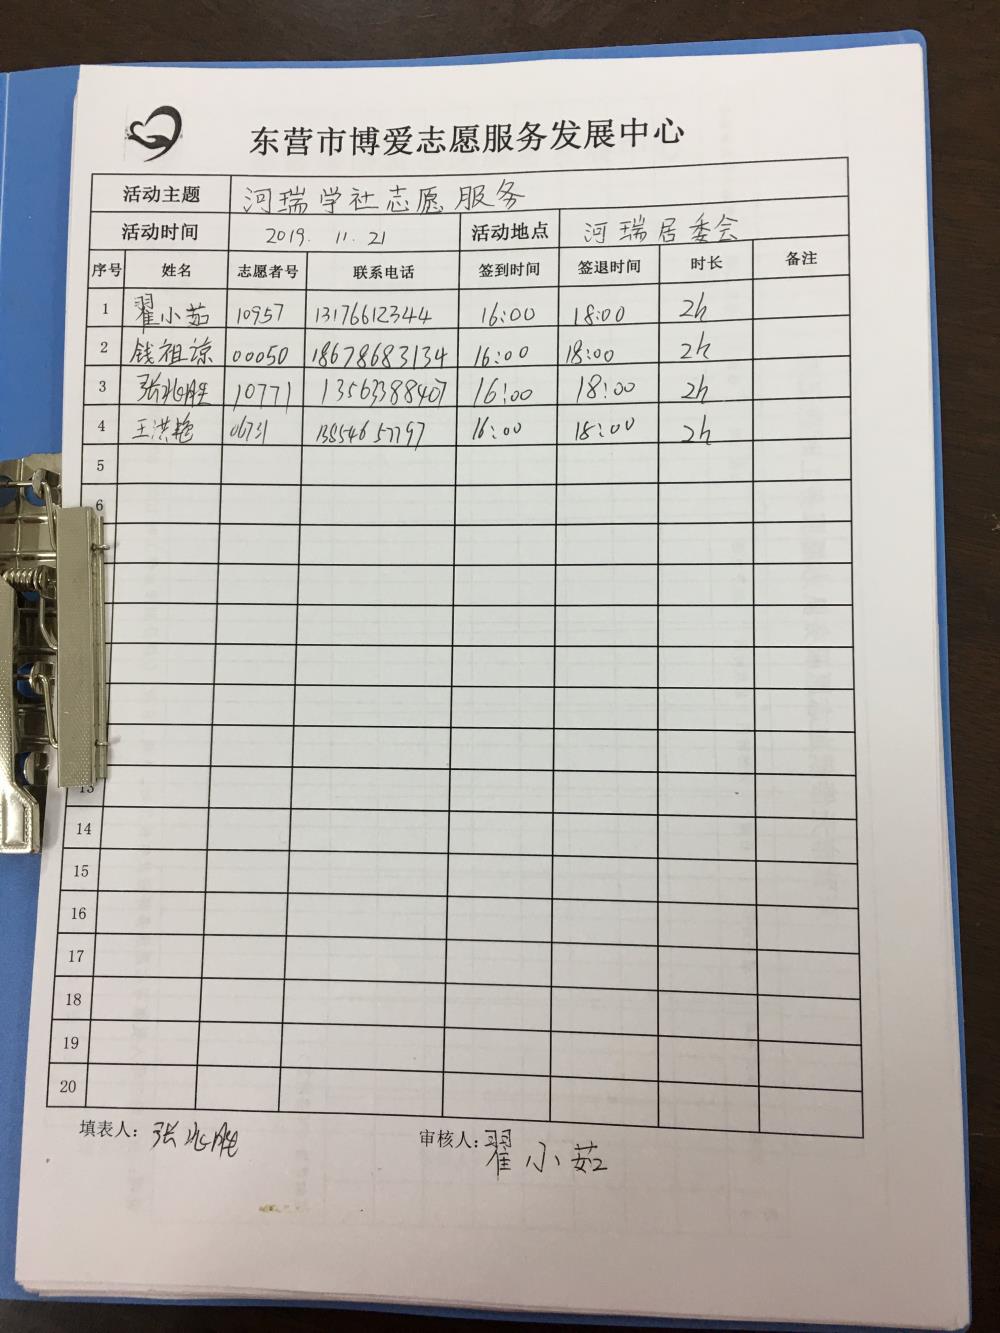 东营市博爱志愿服务发展中心
活动主题 河瑞学社志愿服务
活动时间 2019. 11. 21 活动地点 河瑞居委会
序号 姓名 志愿者号 联系电话 签到时间 签退时间 时长 备注
1 翟小茹 10957 13176612344 16:00 18:00 2h
2 钱祖谅 00050 18678683134 16:00 18:00 2h
3 张兆胜 10771 13563388407 16:00 18:00 2h
4 王洪艳 06731 13854657797 16:00 18:00 2h
5
6
13
14
15
16
17
18
19
20
填表人: 张兆胜 审核人: 翟小茹